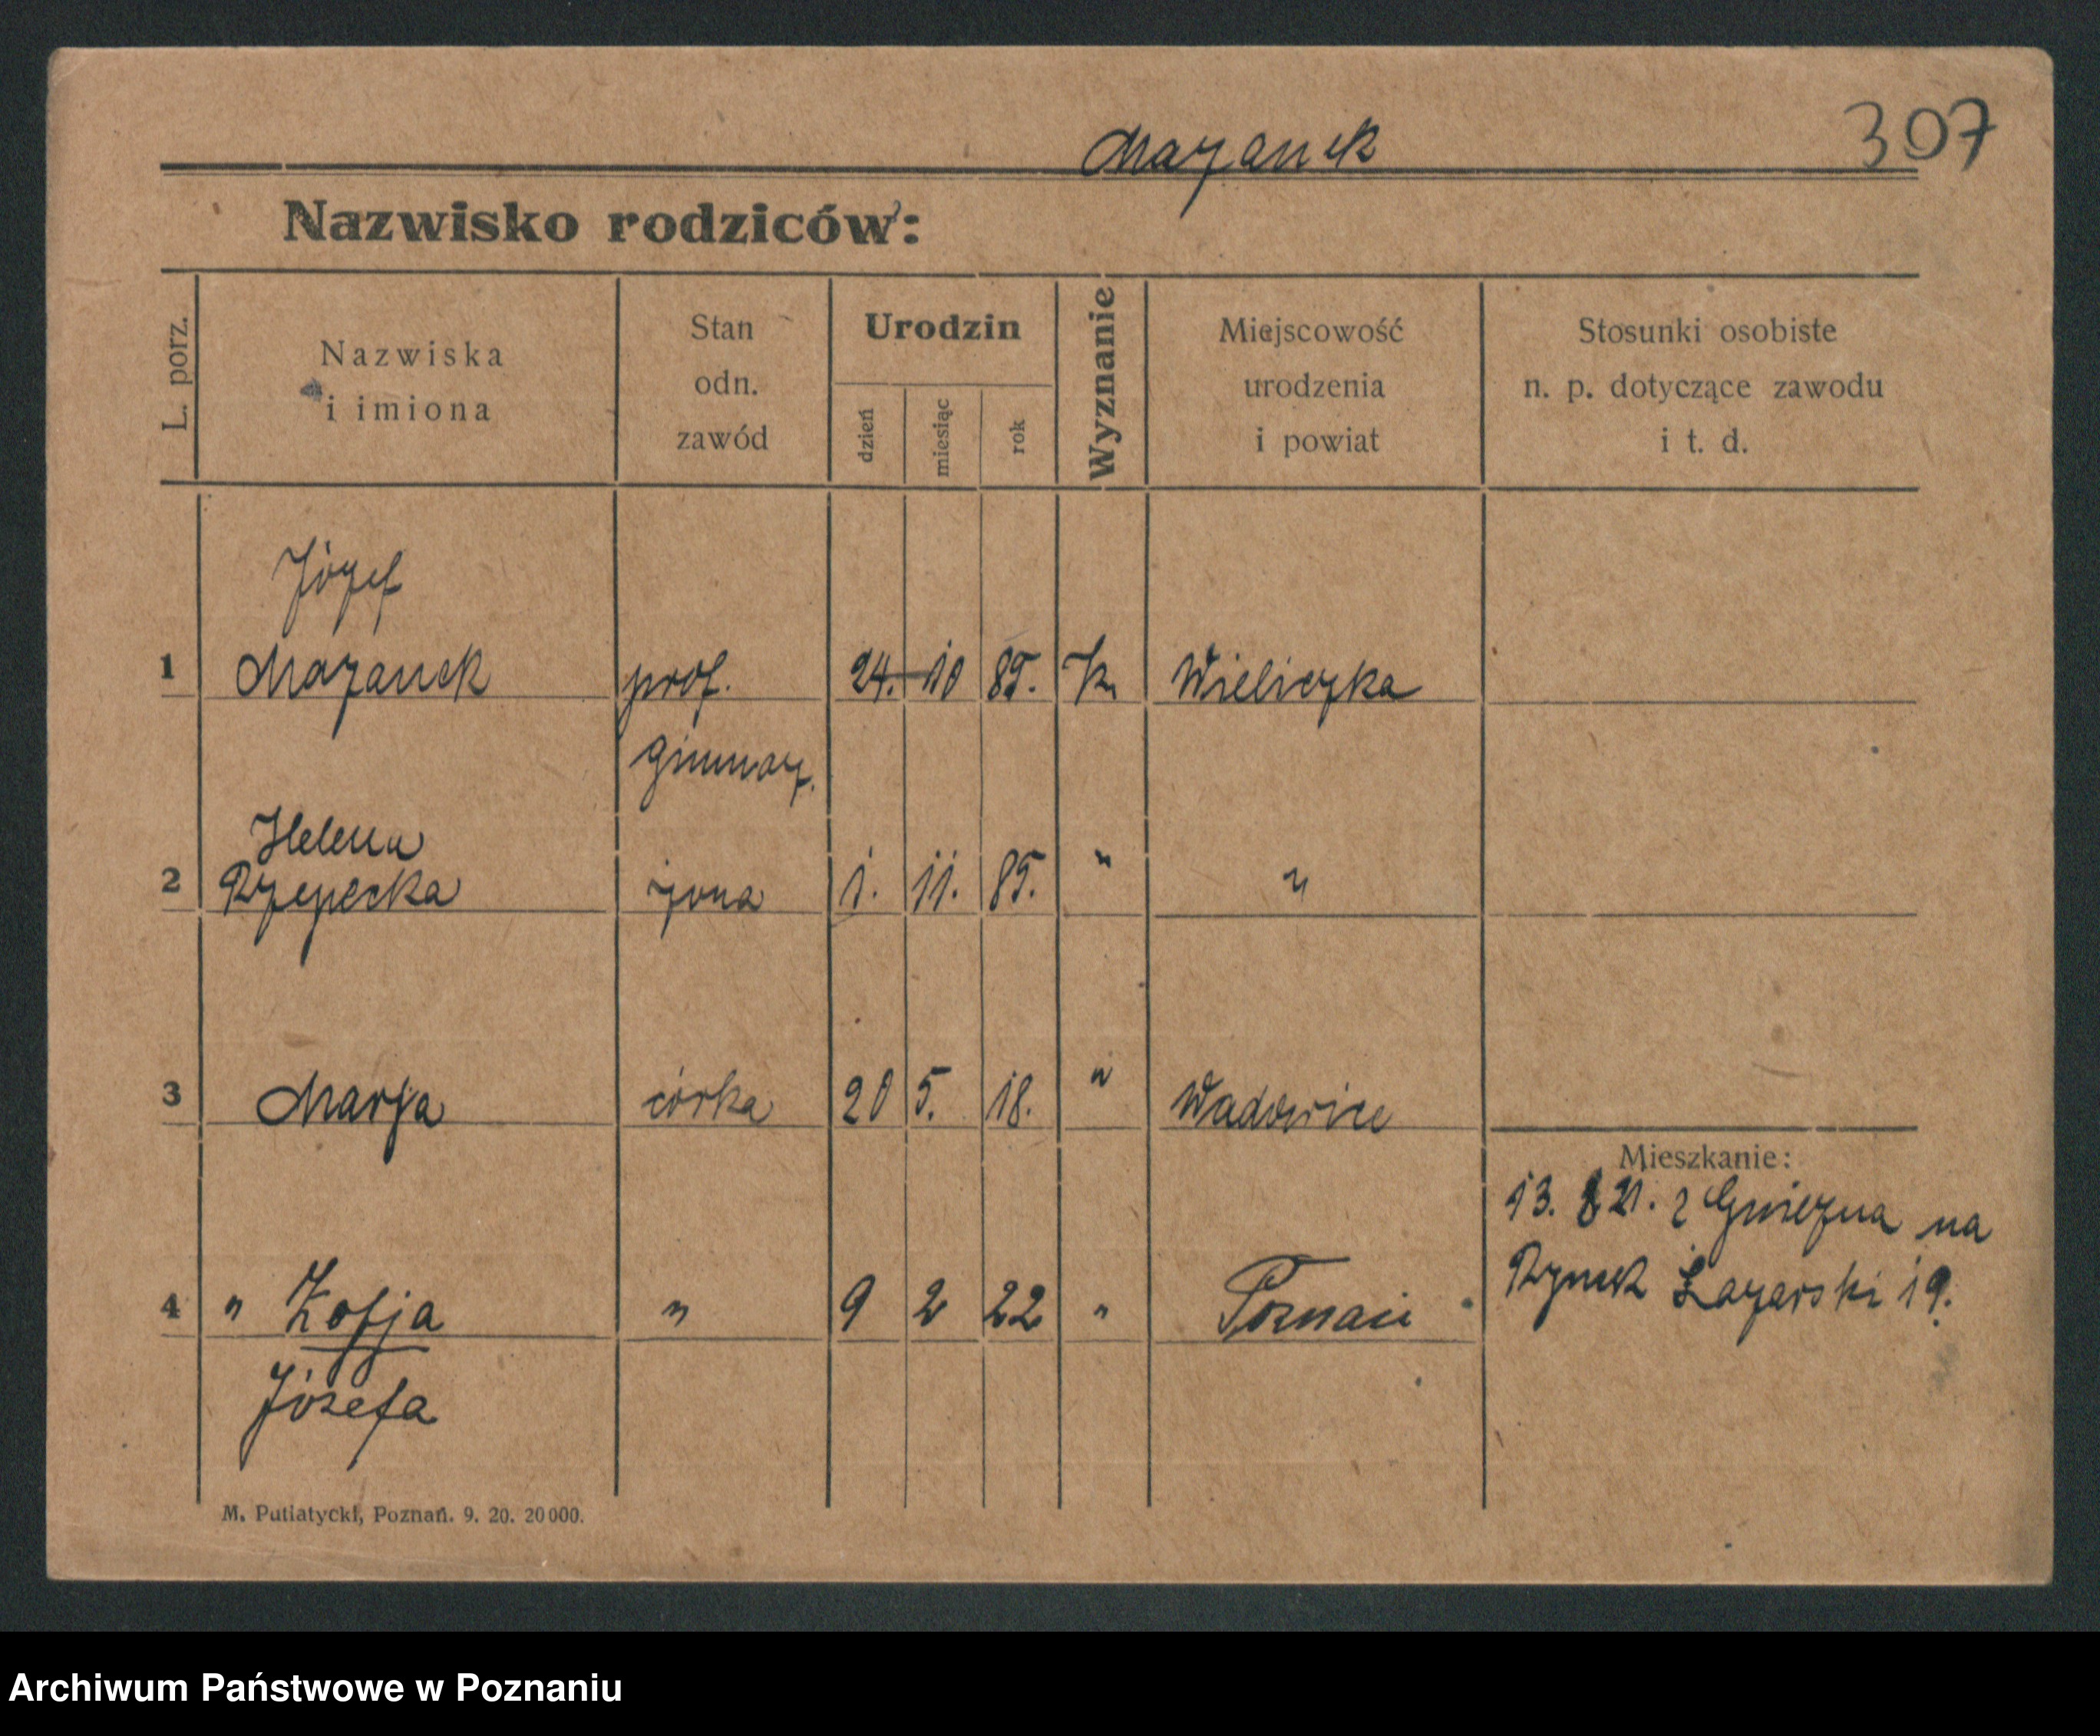 307
Mazanek
Nazwisko rodziców:
L. porz.
Nazwiska
i imiona
Stan
odn.
zawód
Urodzin
dzień
miesiąc
rok
Wyznanie
Miejscowość
urodzenia
i powiat
Stosunki osobiste
n. p. dotyczące zawodu
i t. d.
Józef
1 Mazanek prof. 24. 10 85. k. Wieliczka
Gimnaz.
Helena
2 Rzepecka żona 1. 11. 85. " "
3 Marja córka 20 5. 18. " Wadowice
Mieszkanie:
13. 8 21. z Gniezna na
Rynek Łazarski 19.
4 " Zofja " 9 2 22 " Poznań
Józefa
M. Putiatycki, Poznań. 9. 20. 20000.
Archiwum Państwowe w Poznaniu